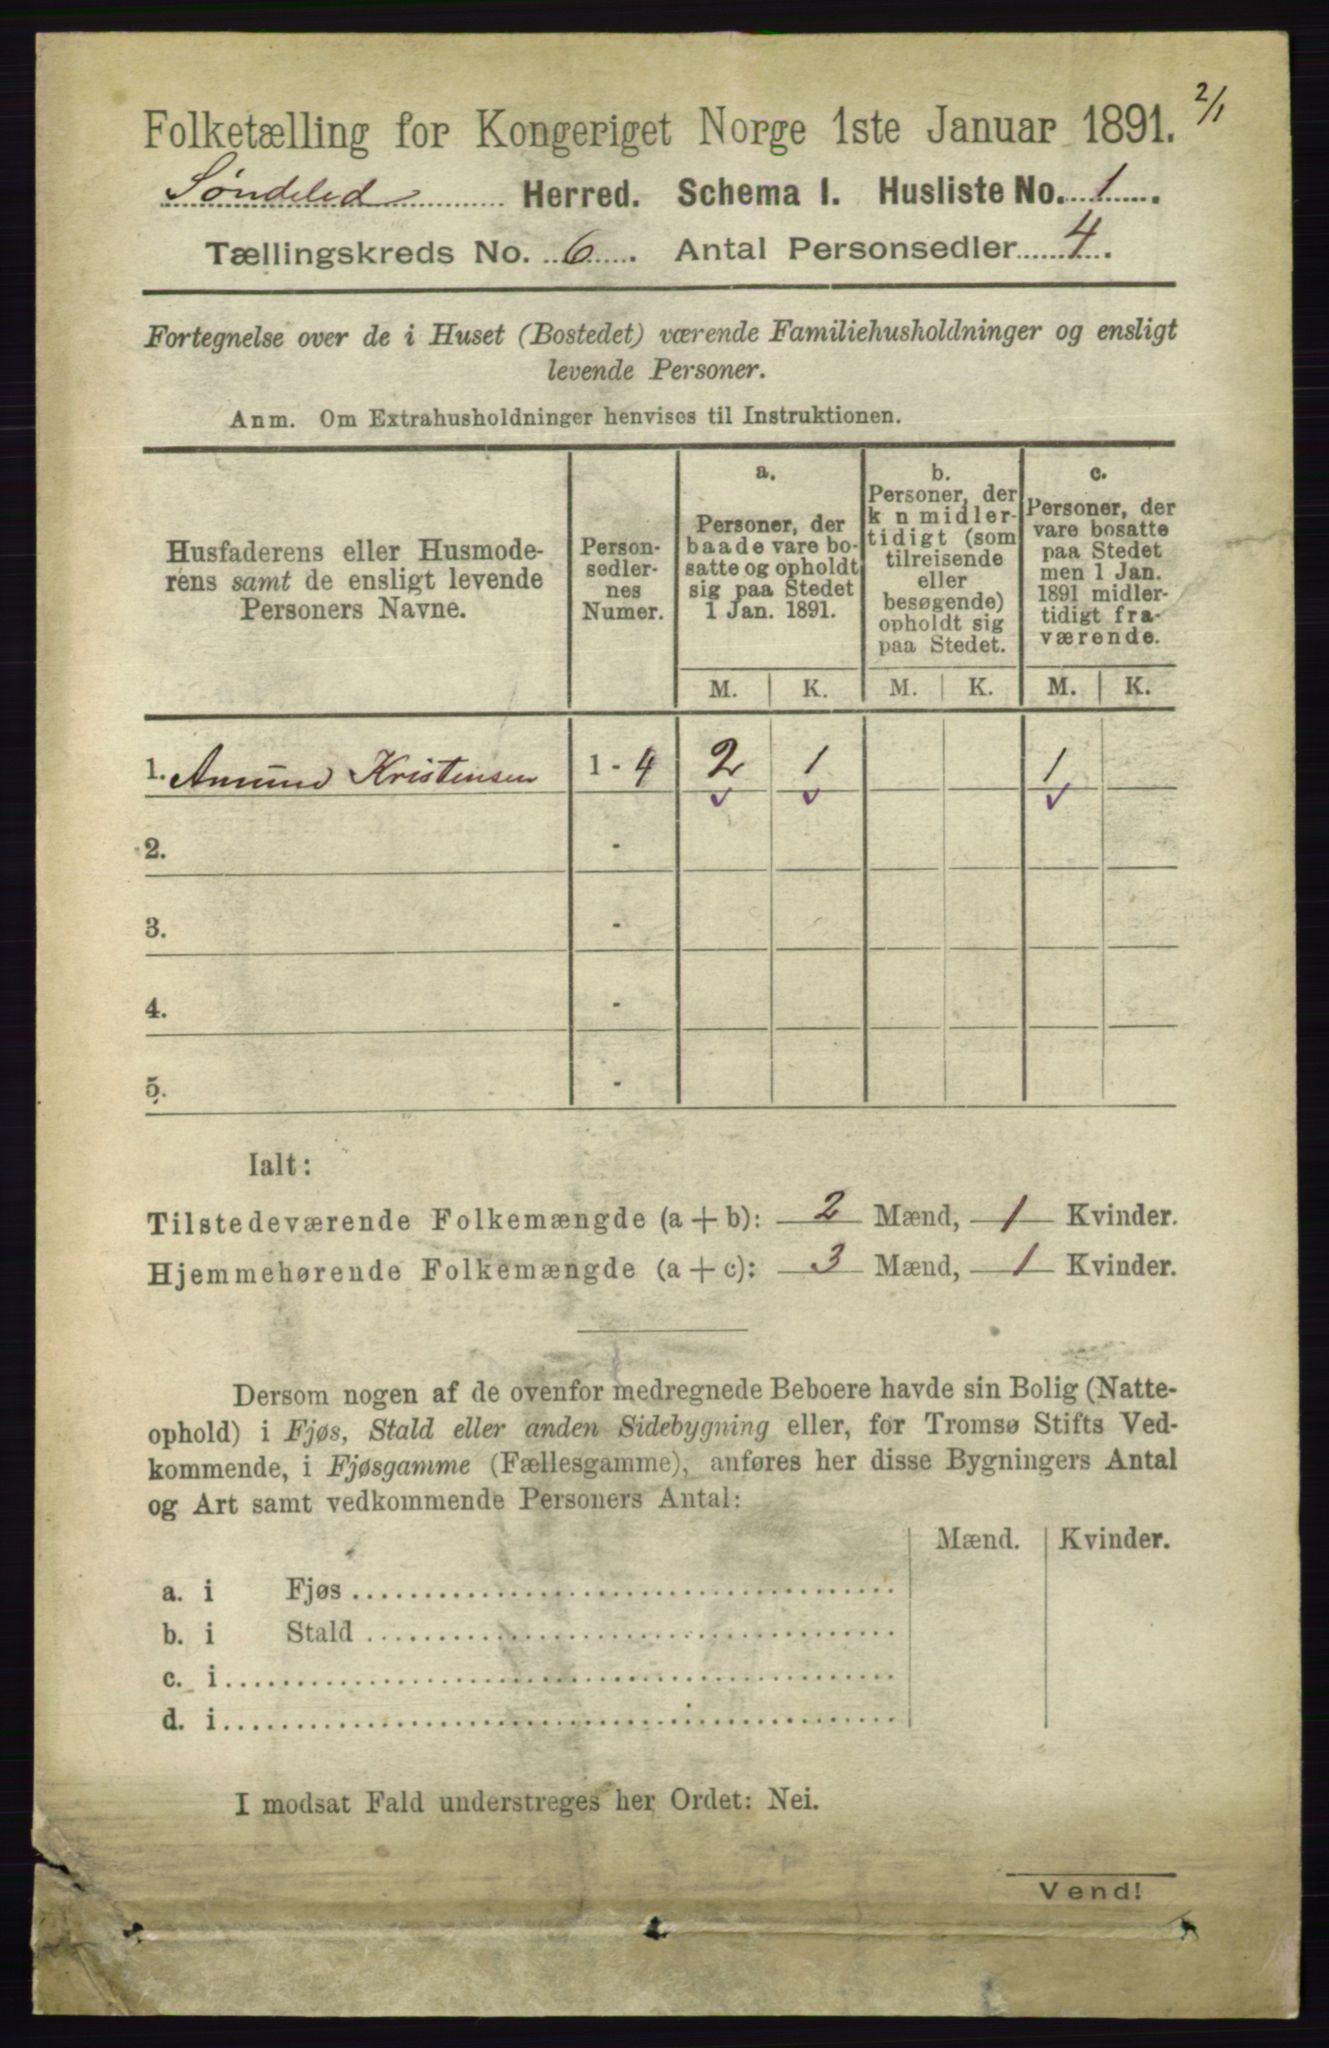 2/1
Folketælling for Kongeriget Norge 1ste Januar 1891.
Søndeled Herred. Schema I. Husliste No. 1.
Tællingskreds No. 6. Antal Personsedler 4.
Fortegnelse over de i Huset (Bostedet) værende Familiehusholdninger og ensligt
levende Personer.
Anm. Om Extrahusholdninger henvises til Instruktionen.
Husfaderens eller Husmode-
rens samt de ensligt levende
Personers Navne.
Person-
sedler-
nes
Numer.
a.
Personer, der
baade vare bo-
satte og opholdt
sig paa Stedet
1 Jan. 1891.
b.
Personer, der
k n midler-
tidigt (som
tilreisende
eller
besøgende)
opholdt sig
paa Stedet.
c.
Personer, der
vare bosatte
paa Stedet
men 1 Jan.
1891 midler-
tidigt fra-
værende.
M. K. M. K. M. K.
1. Amund Kristensen 1 - 4 2 1 1
2. -
3. -
4. -
5. -
Ialt:
Tilstedeværende Folkemængde (a + b): 2 Mænd, 1 Kvinder.
Hjemmehørende Folkemængde (a + c): 3 Mænd, 1 Kvinder.
Dersom nogen af de ovenfor medregnede Beboere havde sin Bolig (Natte-
ophold) i Fjøs, Stald eller anden Sidebygning eller, for Tromsø Stifts Ved-
kommende, i Fjøsgamme (Fællesgamme), anføres her disse Bygningers Antal
og Art samt vedkommende Personers Antal:
Mænd. Kvinder.
a. i Fjøs
b. i Stald
c. i
d. i
I modsat Fald understreges her Ordet: Nei.
Vend!